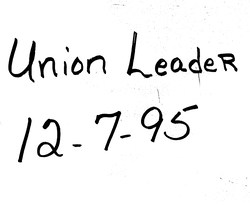 Union Leader
12-7-95